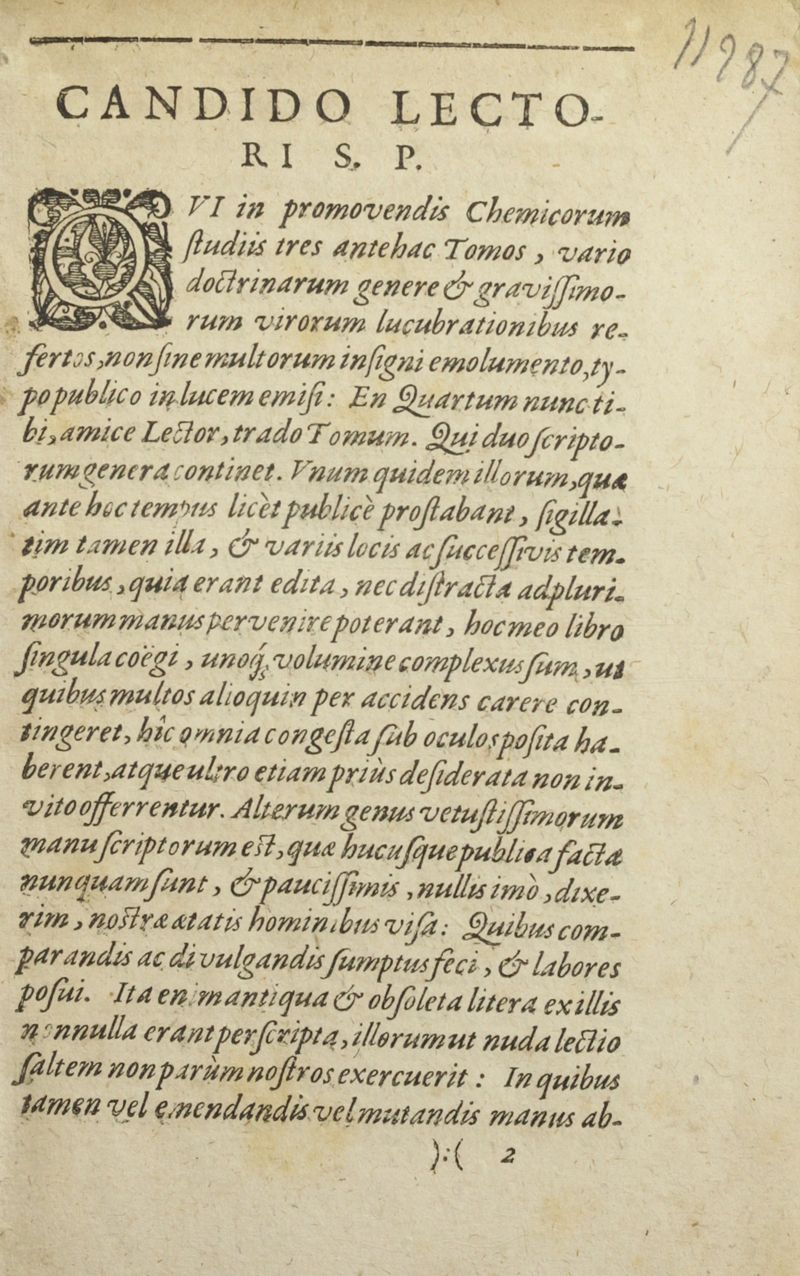 11987
CANDIDO LECTO-
RI S. P.
QVI in promovendis Chemicorum
ſtudiis tres antehac Tomos, vario
doctrinarum genere & graviſſimo-
rum virorum lucubrationibus re-
fertos, non ſine multorum inſigni emolumento, ty-
po publico in lucem emiſi: En Quartum nunc ti-
bi, amice Lector, trado Tomum. Qui duo ſcripto-
rum genera continet. Vnum quidem illorum, quæ
ante hoc tempus licèt publicè proſtabant, ſigilla-
tim tamen illa, & variis locis ac ſucceſſivis tem-
poribus, quia erant edita, nec diſtracta ad pluri-
morum manus pervenire poterant, hoc meo libro
ſingula coëgi, unoq́; volumine complexus ſum, ut
quibus multos alioquin per accidens carere con-
tingeret, hîc omnia congeſta ſub oculos poſita ha-
berent, atque ultro etiam priùs deſiderata non in-
vito offerrentur. Alterum genus vetuſtiſſimorum
manuſcriptorum eſt, quæ hucuſque publica facta
nunquam ſunt, & pauciſſimis, nullis imò, dixe-
rim, noſtræ ætatis hominibus viſa: Quibus com-
parandis ac divulgandis ſumptus feci, & labores
poſui. Ita enim antiqua & obſoleta litera ex illis
nonnulla erant perſcripta, illorum ut nuda lectio
ſaltem non parùm noſtros exercuerit: In quibus
tamen vel emendandis vel mutandis manus ab-
):( 2